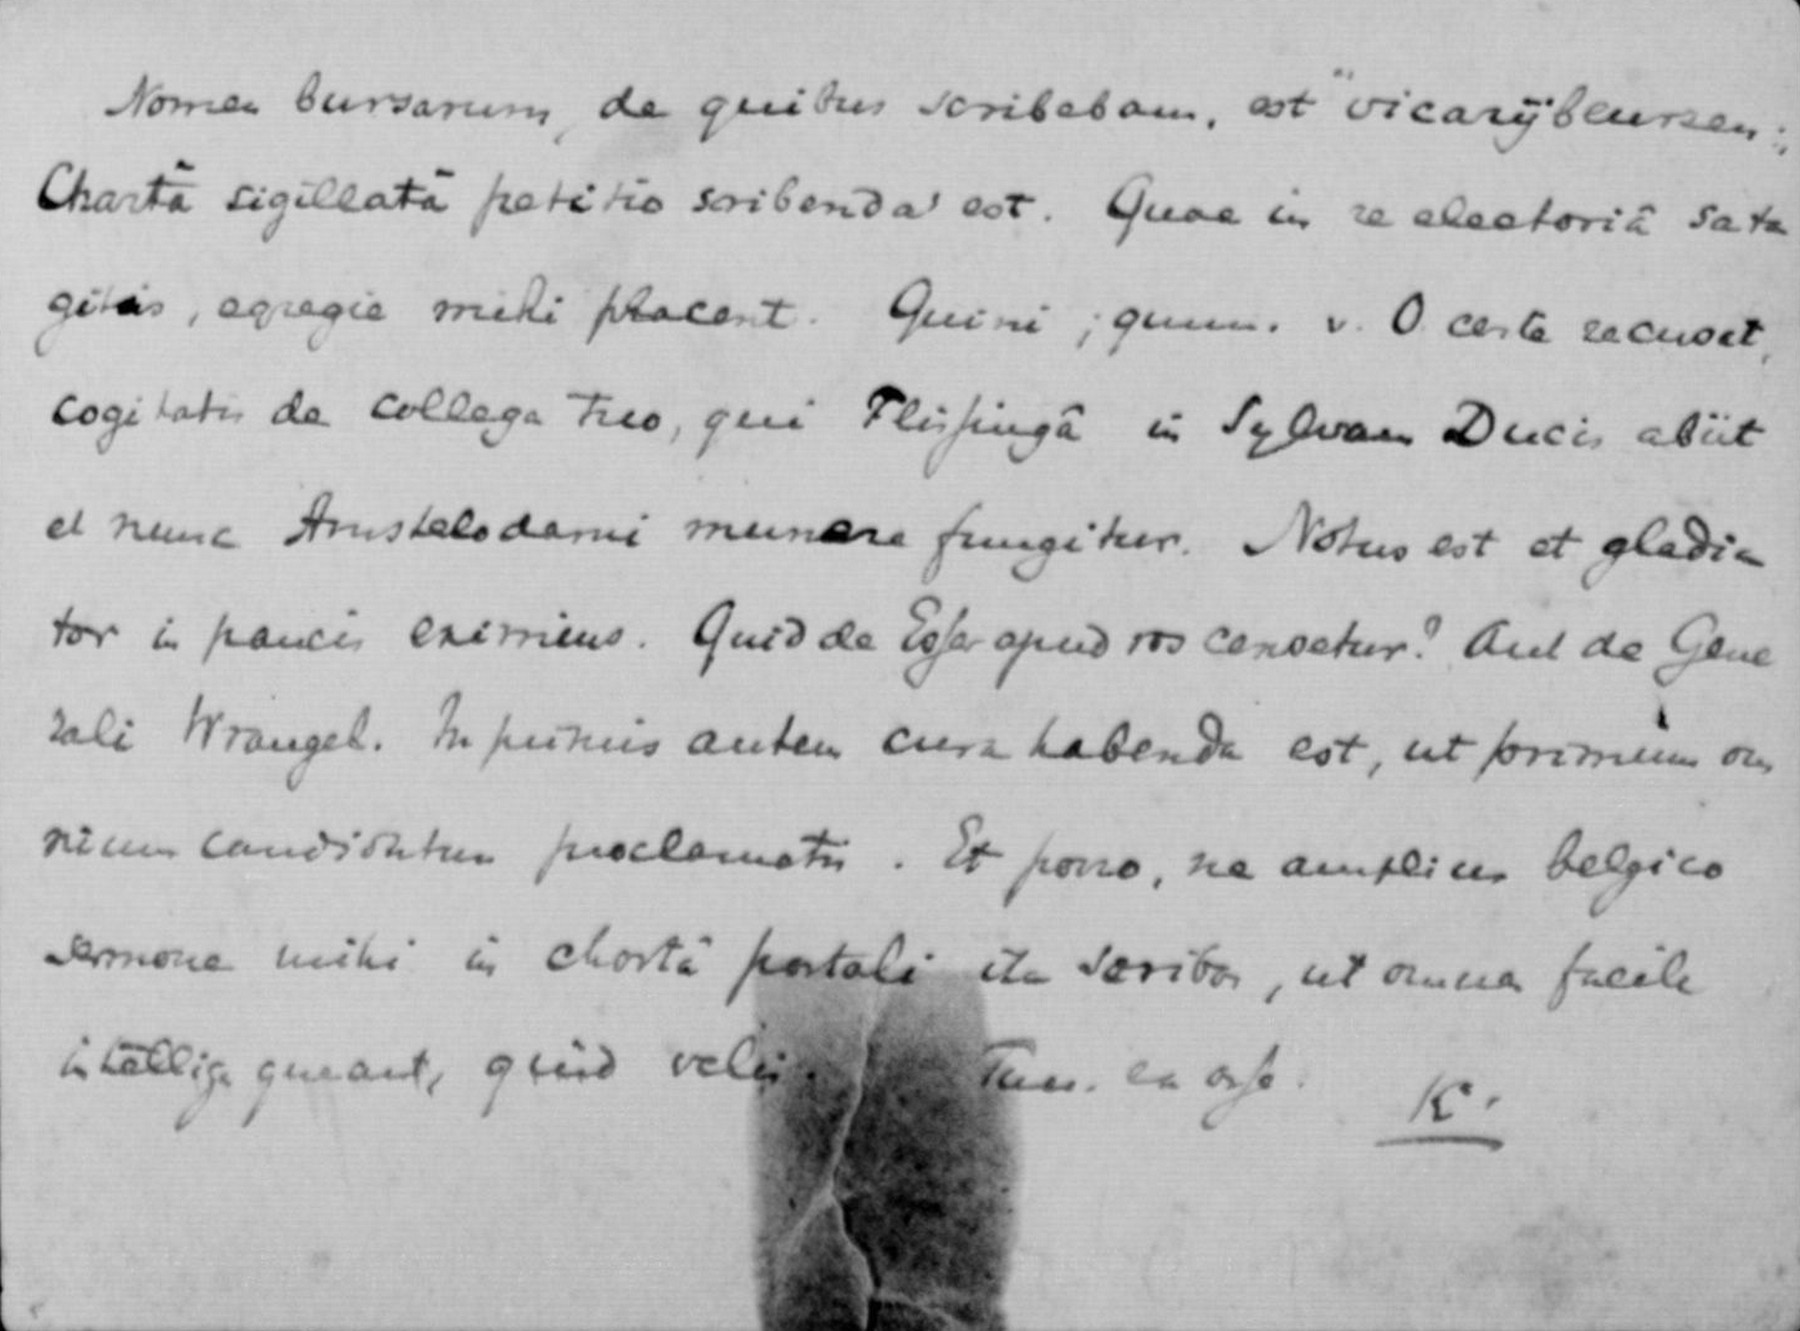 Nomen bursarum, de quibus scribebam, est "vicarijbeurzen":
Chartâ sigillatâ petitio scribenda est. Quae in re electoriâ sata
gitis, egregie mihi placent. Quini, quum. v. O certe recuset,
cogitatis de collega tuo, qui Flissingâ in Sylvam Ducis abiit
et nunc Amstelodami munere fungitur. Notus est et gladia
tor in paucis eximius. Quid de apud vos censetur? Aut de Gene
rali Wrangel. In primis autem cura habenda est, ut primum om
nium candidatum proclametis. Et porro, ne amplius belgico
sermone mihi in chartâ portali ita scribas, ut omnes facile
intellige queant, quid velis. Tuus. K.